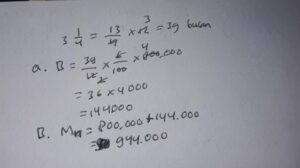 3 1/4 = 13/4 x 12 3 = 39 bulan
a. B = 39/12 x 6/100 x 800,000 4
= 36 x 4000
= 144000
B. M = 800,000 + 144.000
= 944.000